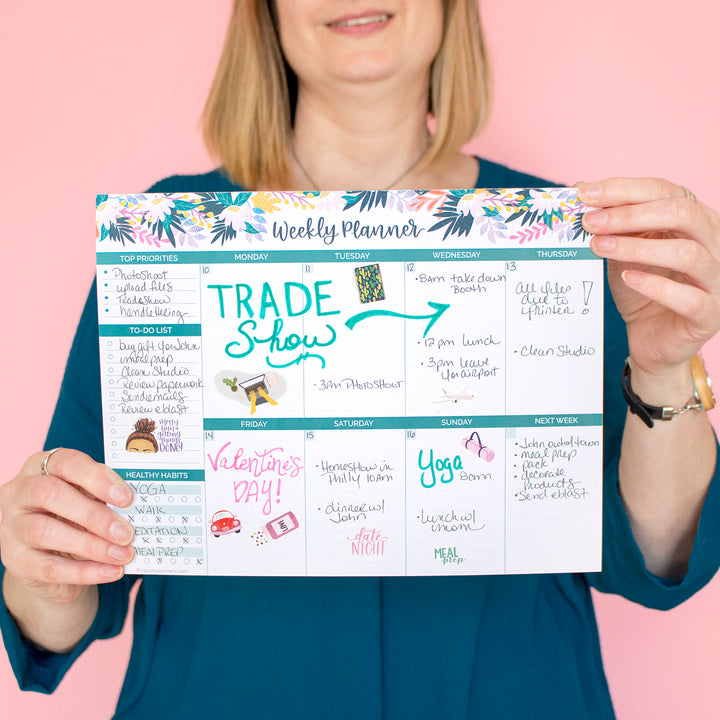 Weekly Planner
TOP PRIORITIES
Photoshoot
upload files
Tradeshow
handlettering
TO-DO LIST
buy gift 4 John
meal prep
Clean Studio
Review paperwork
Send emails
Review eblast
messy
bun &
getting
things
DONE!
HEALTHY HABITS
YOGA
WALK
MEDITATION
MEAL PREP
MONDAY
10
TRADE
Show
TUESDAY
11
3pm PHOTOSHOOT
WEDNESDAY
12
8am take down
Booth
12pm lunch
3pm leave
4 airport
THURSDAY
13
All files
due to
printer!
Clean Studio
FRIDAY
14
Valentine's
DAY!
SATURDAY
15
Homeshow in
Philly 10am
dinner w/
John
date
NIGHT
SUNDAY
16
Yoga
8am
Lunch w/
mom
MEAL
prep
NEXT WEEK
John out of town
meal prep
pack
decorate
products
Send eblast